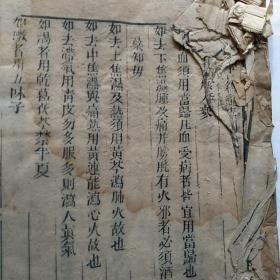 血須用當歸凡血受病者皆宜用當歸也
如去下焦濕腫及痛并膀胱有火邪者必須酒
如去上焦濕及熱須用黃芩瀉肺火故也
如去中焦濕與痛熱用黃連能瀉心火故也
如去滯氣用青皮勿多服多則瀉人真氣
如渴者用乾葛茯苓禁半夏
如嗽者用五味子